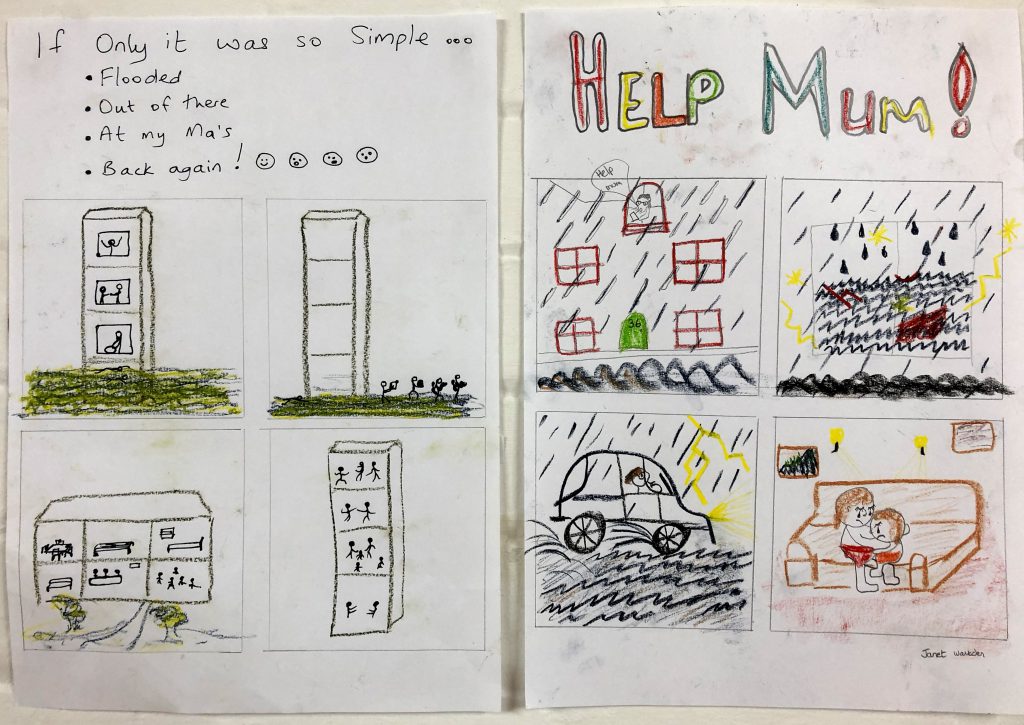 If Only it was so Simple ...
• Flooded
• Out of there
• At my Ma's
• Back again!
HELP MUM!
Help
mum
36
Janet